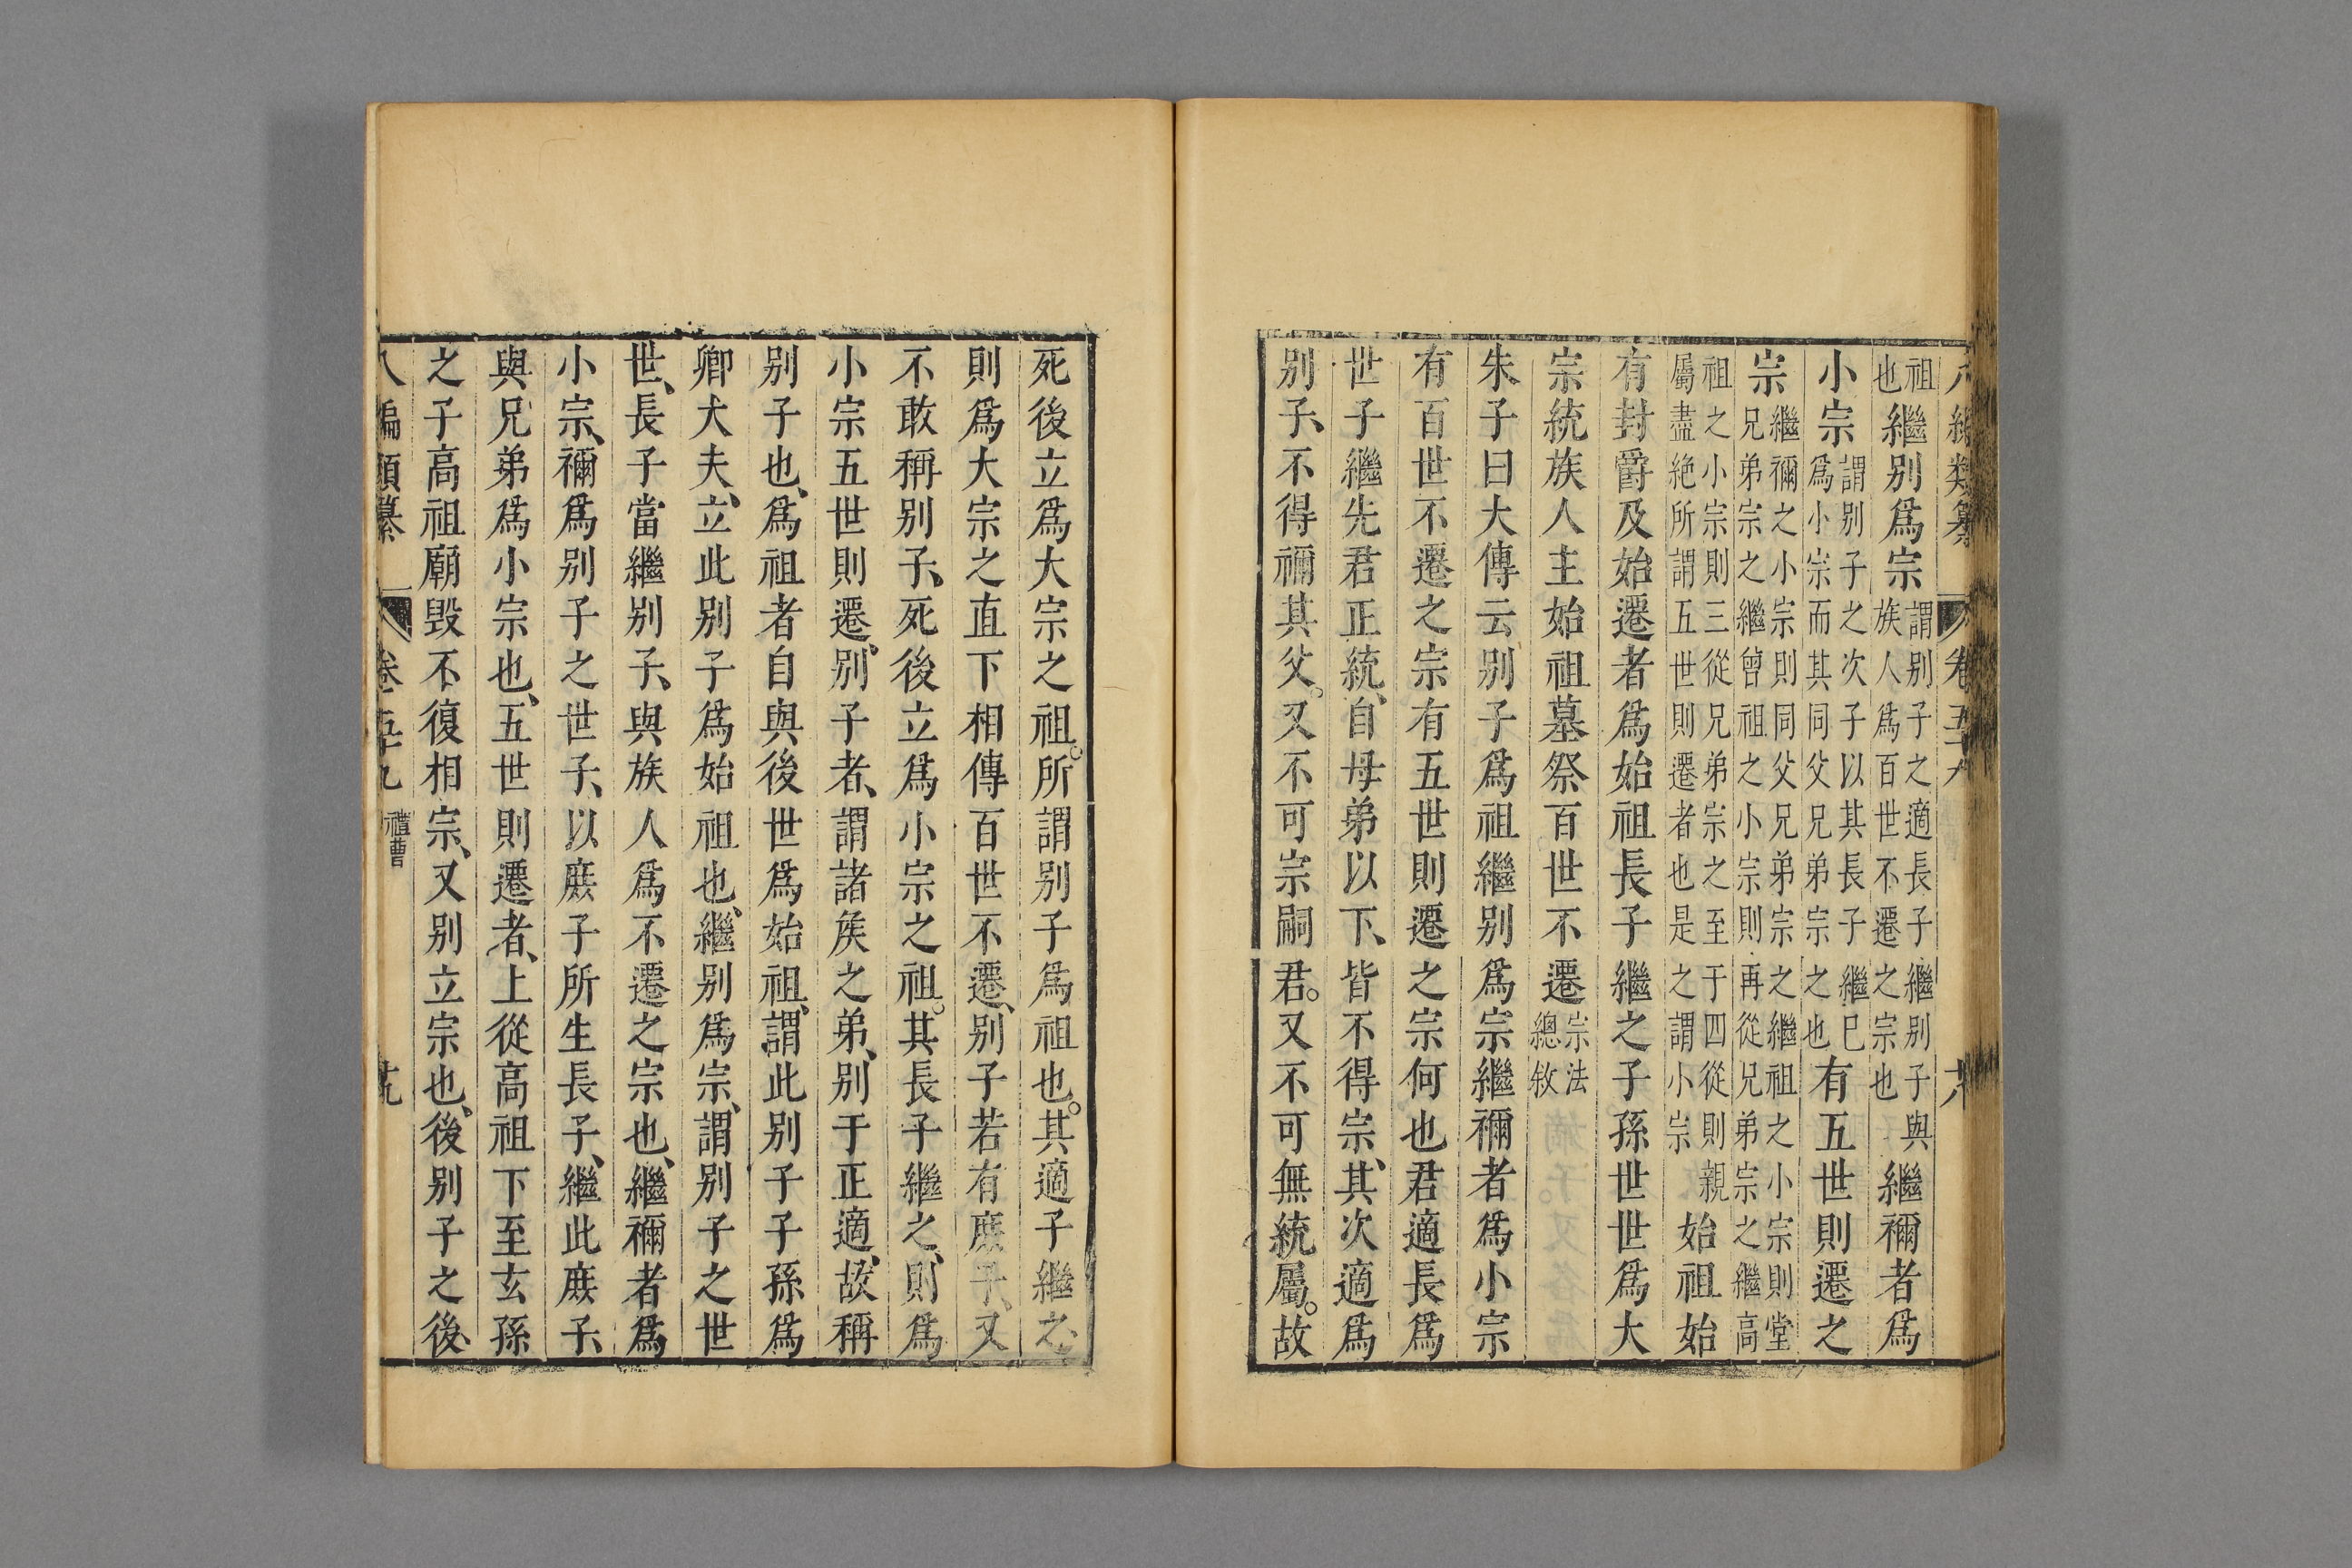 祖也繼别爲宗謂别子之適長子繼别子與族人爲百世不遷之宗也繼禰者爲
小宗謂别子之次子以其長子繼已爲小宗而其同父兄弟宗之也有五世則遷之
宗繼禰之小宗則同父兄弟宗之繼祖之小宗則堂兄弟宗之繼曾祖之小宗則再從兄弟宗之繼高
祖之小宗則三從兄弟宗之至于四從則親屬盡絶所謂五世則遷者也是之謂小宗始祖始
有封爵及始遷者爲始祖長子繼之子孫世世爲大
宗統族人主始祖墓祭百世不遷宗法總敘
朱子曰大傳云别子爲祖繼别爲宗繼禰者爲小宗
有百世不遷之宗有五世則遷之宗何也君適長爲
世子繼先君正統、自母弟以下、皆不得宗、其次適爲
别子、不得禰其父。又不可宗嗣君。又不可無統屬。故
死後立爲大宗之祖。所謂别子爲祖也。其適子繼之、
則爲大宗之直下相傳百世不遷、别子若有庶子、又
不敢稱别子、死後立爲小宗之祖。其長子繼之、則爲
小宗五世則遷、别子者、謂諸矦之弟、别于正適、故稱
别子也、爲祖者自與後世爲始祖、謂此别子子孫爲
卿大夫、立此别子爲始祖也、繼别爲宗、謂别子之世
世、長子當繼别子、與族人爲不遷之宗也、繼禰者爲
小宗、禰爲别子之世子、以庶子所生長子、繼此庶子、
與兄弟爲小宗也、五世則遷者、上從高祖下至玄孫
之子高祖廟毀不復相宗、又别立宗也、後别子之後、
八編類纂 卷五十九 禮曹 十九